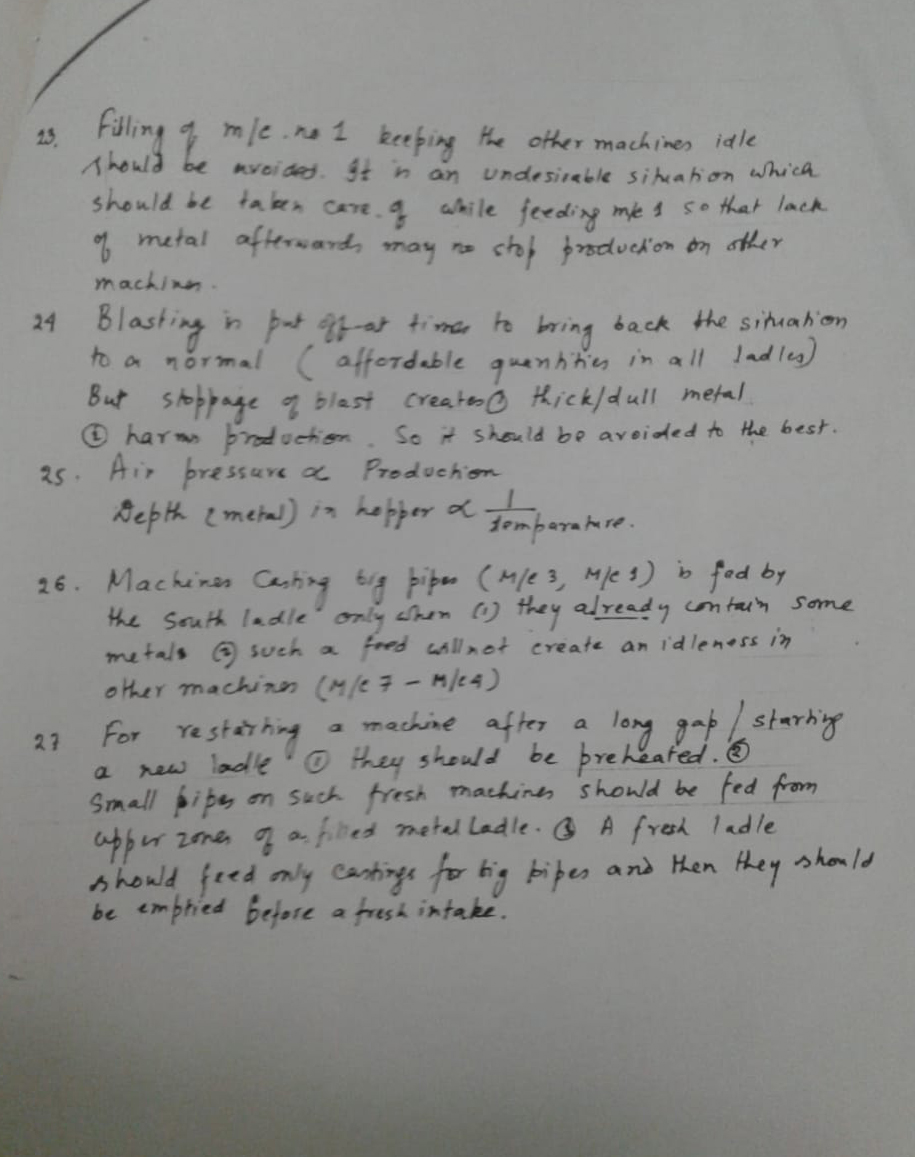 23. Filling of m/c. no 1 keeping the other machines idle
should be avoided. It is an undesirable situation which
should be taken care of while feeding m/c 1 so that lack
of metal afterwards may no stop production on other
machines.
24 Blasting is put off at times to bring back the situation
to a normal ( affordable quantities in all ladles)
But stoppage of blast creates ① thick/dull metal
② harms production. So it should be avoided to the best.
25. Air pressure ∝ Production
Depth (metal) in hopper ∝ 1/temparature.
26. Machines Casting big pipes (M/c 3, M/c 1) is fed by
the South ladle only when (1) they already contain some
metals ② such a feed will not create an idleness in
other machines (M/c 7 - M/c 4)
27 For restarting a machine after a long gap / starting
a new ladle ① they should be preheated. ②
Small pipes on such fresh machines should be fed from
upper zones of a filled metal Ladle. ③ A fresh ladle
should feed only castings for big pipes and then they should
be emptied before a fresh intake.